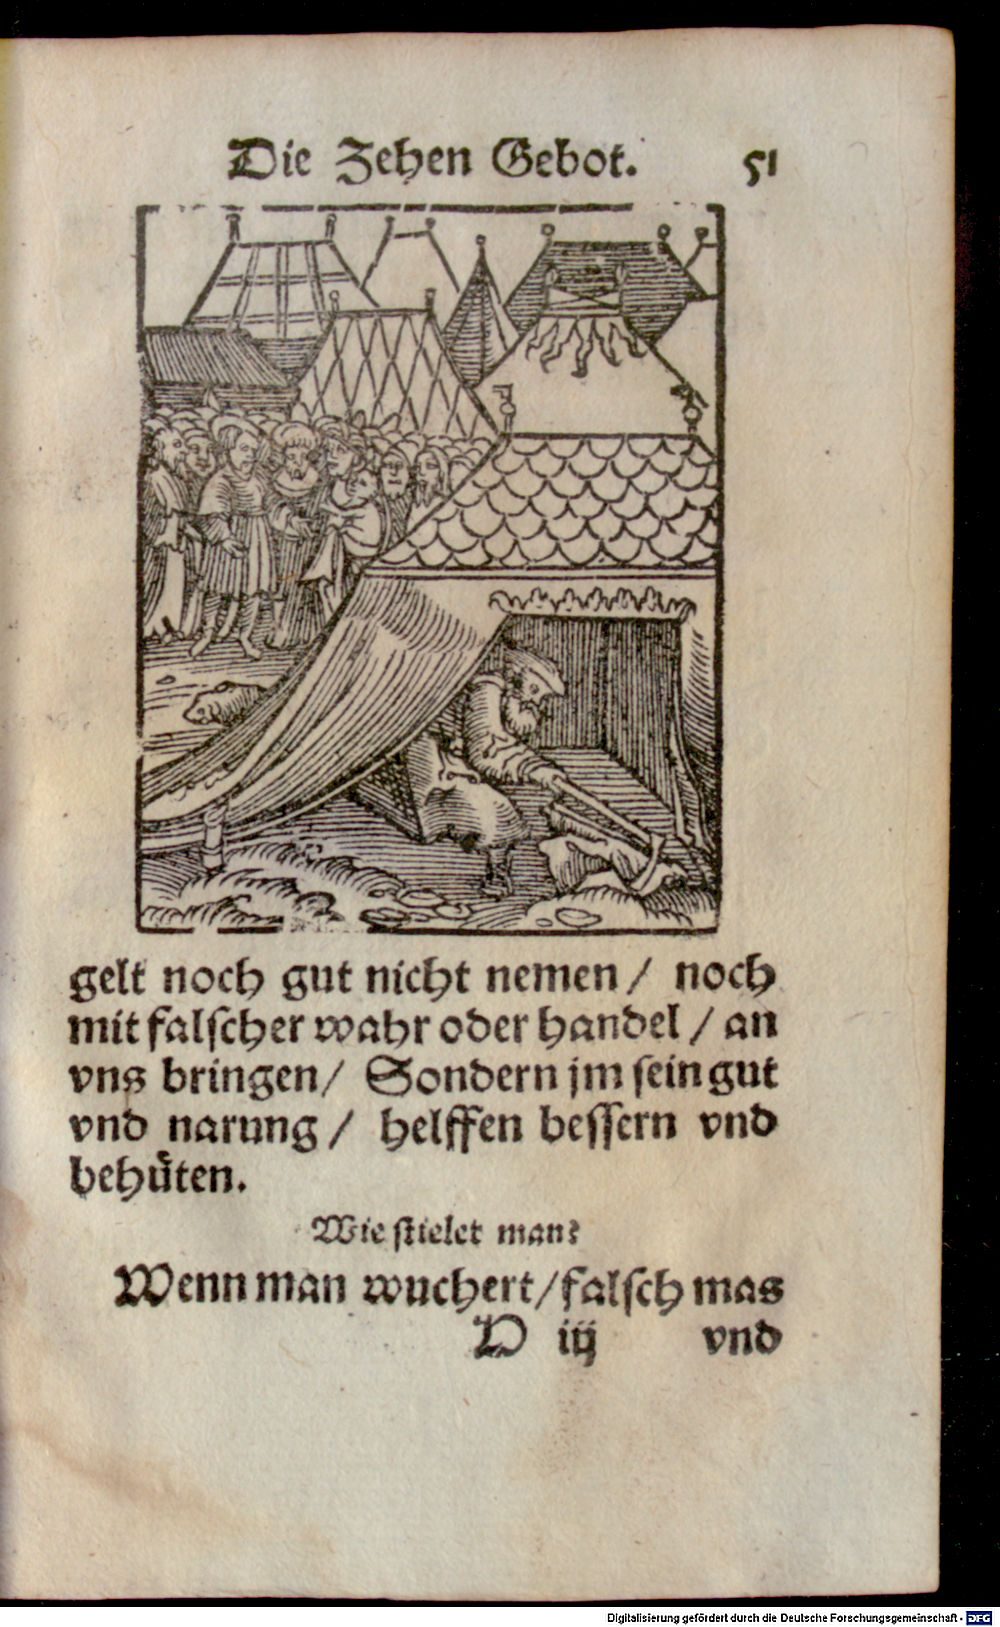 Die Zehen Gebot. 51
gelt noch gut nicht nemen / noch
mit falscher wahr oder handel / an
vns bringen / Sondern jm sein gut
vnd narung / helffen bessern vnd
behuͤten.
Wie stielet man?
Wenn man wuchert / falsch mas
D iij vnd
Digitalisierung gefördert durch die Deutsche Forschungsgemeinschaft - DFG